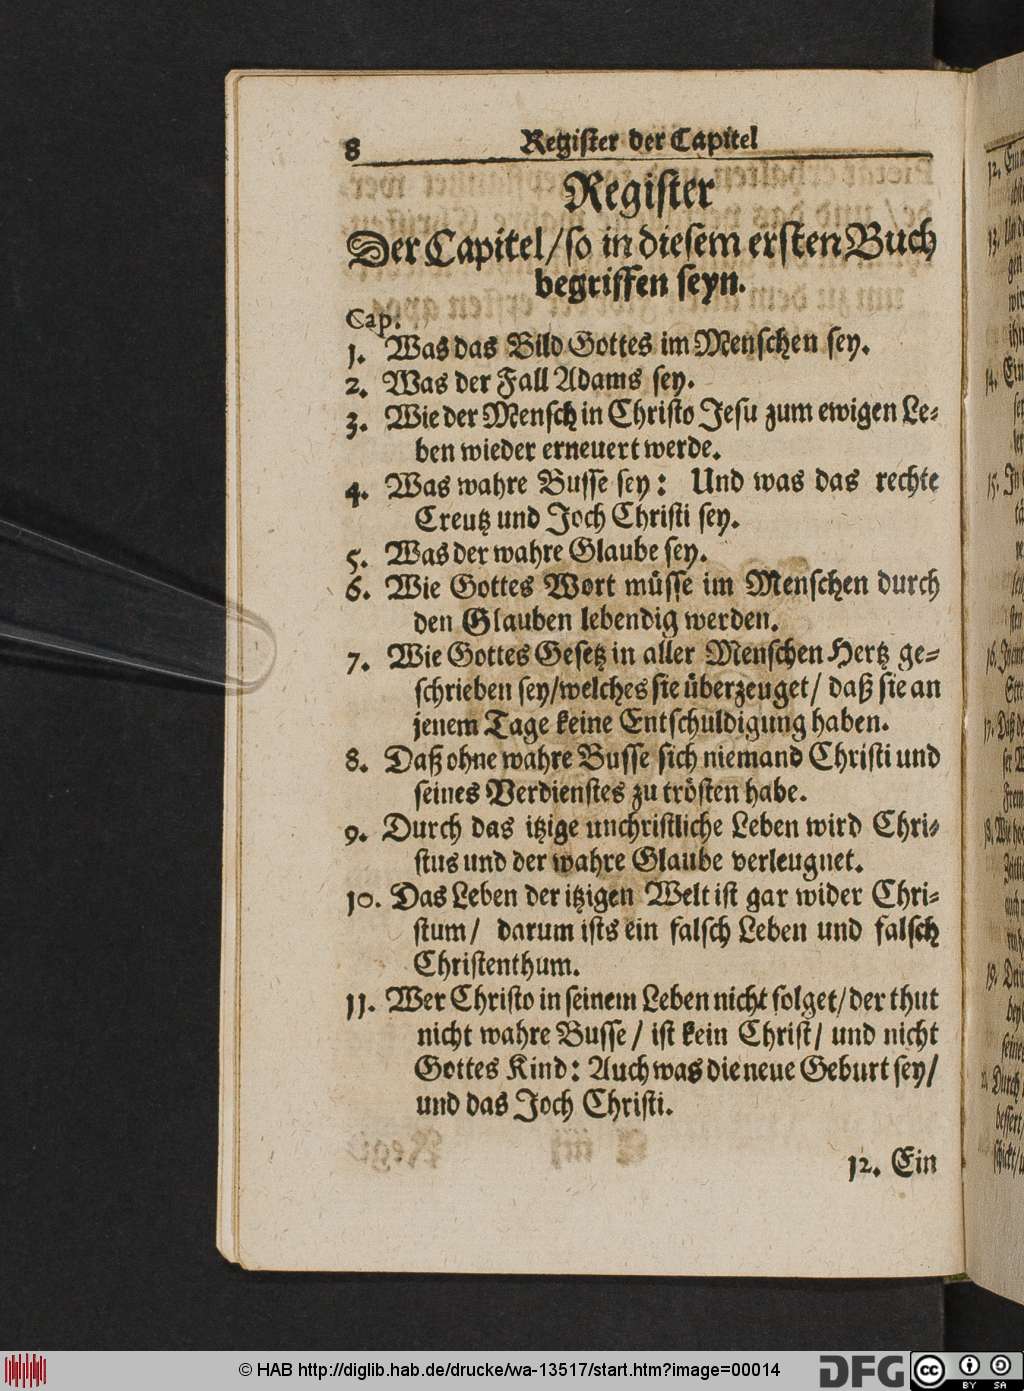 8 Register der Capitel
Register
Der Capitel/ so in diesem ersten Buch
begriffen seyn.
Cap.
1. Was das Bild Gottes im Menschen sey.
2. Was der Fall Adams sey.
3. Wie der Mensch in Christo Jesu zum ewigen Le-
ben wieder erneuert werde.
4. Was wahre Busse sey: Und was das rechte
Creutz und Joch Christi sey.
5. Was der wahre Glaube sey.
6. Wie Gottes Wort müsse im Menschen durch
den Glauben lebendig werden.
7. Wie Gottes Gesetz in aller Menschen Hertz ge-
schrieben sey/ welches sie überzeuget/ daß sie an
jenem Tage keine Entschuldigung haben.
8. Daß ohne wahre Busse sich niemand Christi und
seines Verdienstes zu trösten habe.
9. Durch das itzige unchristliche Leben wird Chri-
stus und der wahre Glaube verleugnet.
10. Das Leben der itzigen Welt ist gar wider Chri-
stum/ darum ists ein falsch Leben und falsch
Christenthum.
11. Wer Christo in seinem Leben nicht folget/ der thut
nicht wahre Busse/ ist kein Christ/ und nicht
Gottes Kind: Auch was die neue Geburt sey/
und das Joch Christi.
12. Ein
© HAB http://diglib.hab.de/drucke/wa-13517/start.htm?image=00014
DFG
cc
BY SA